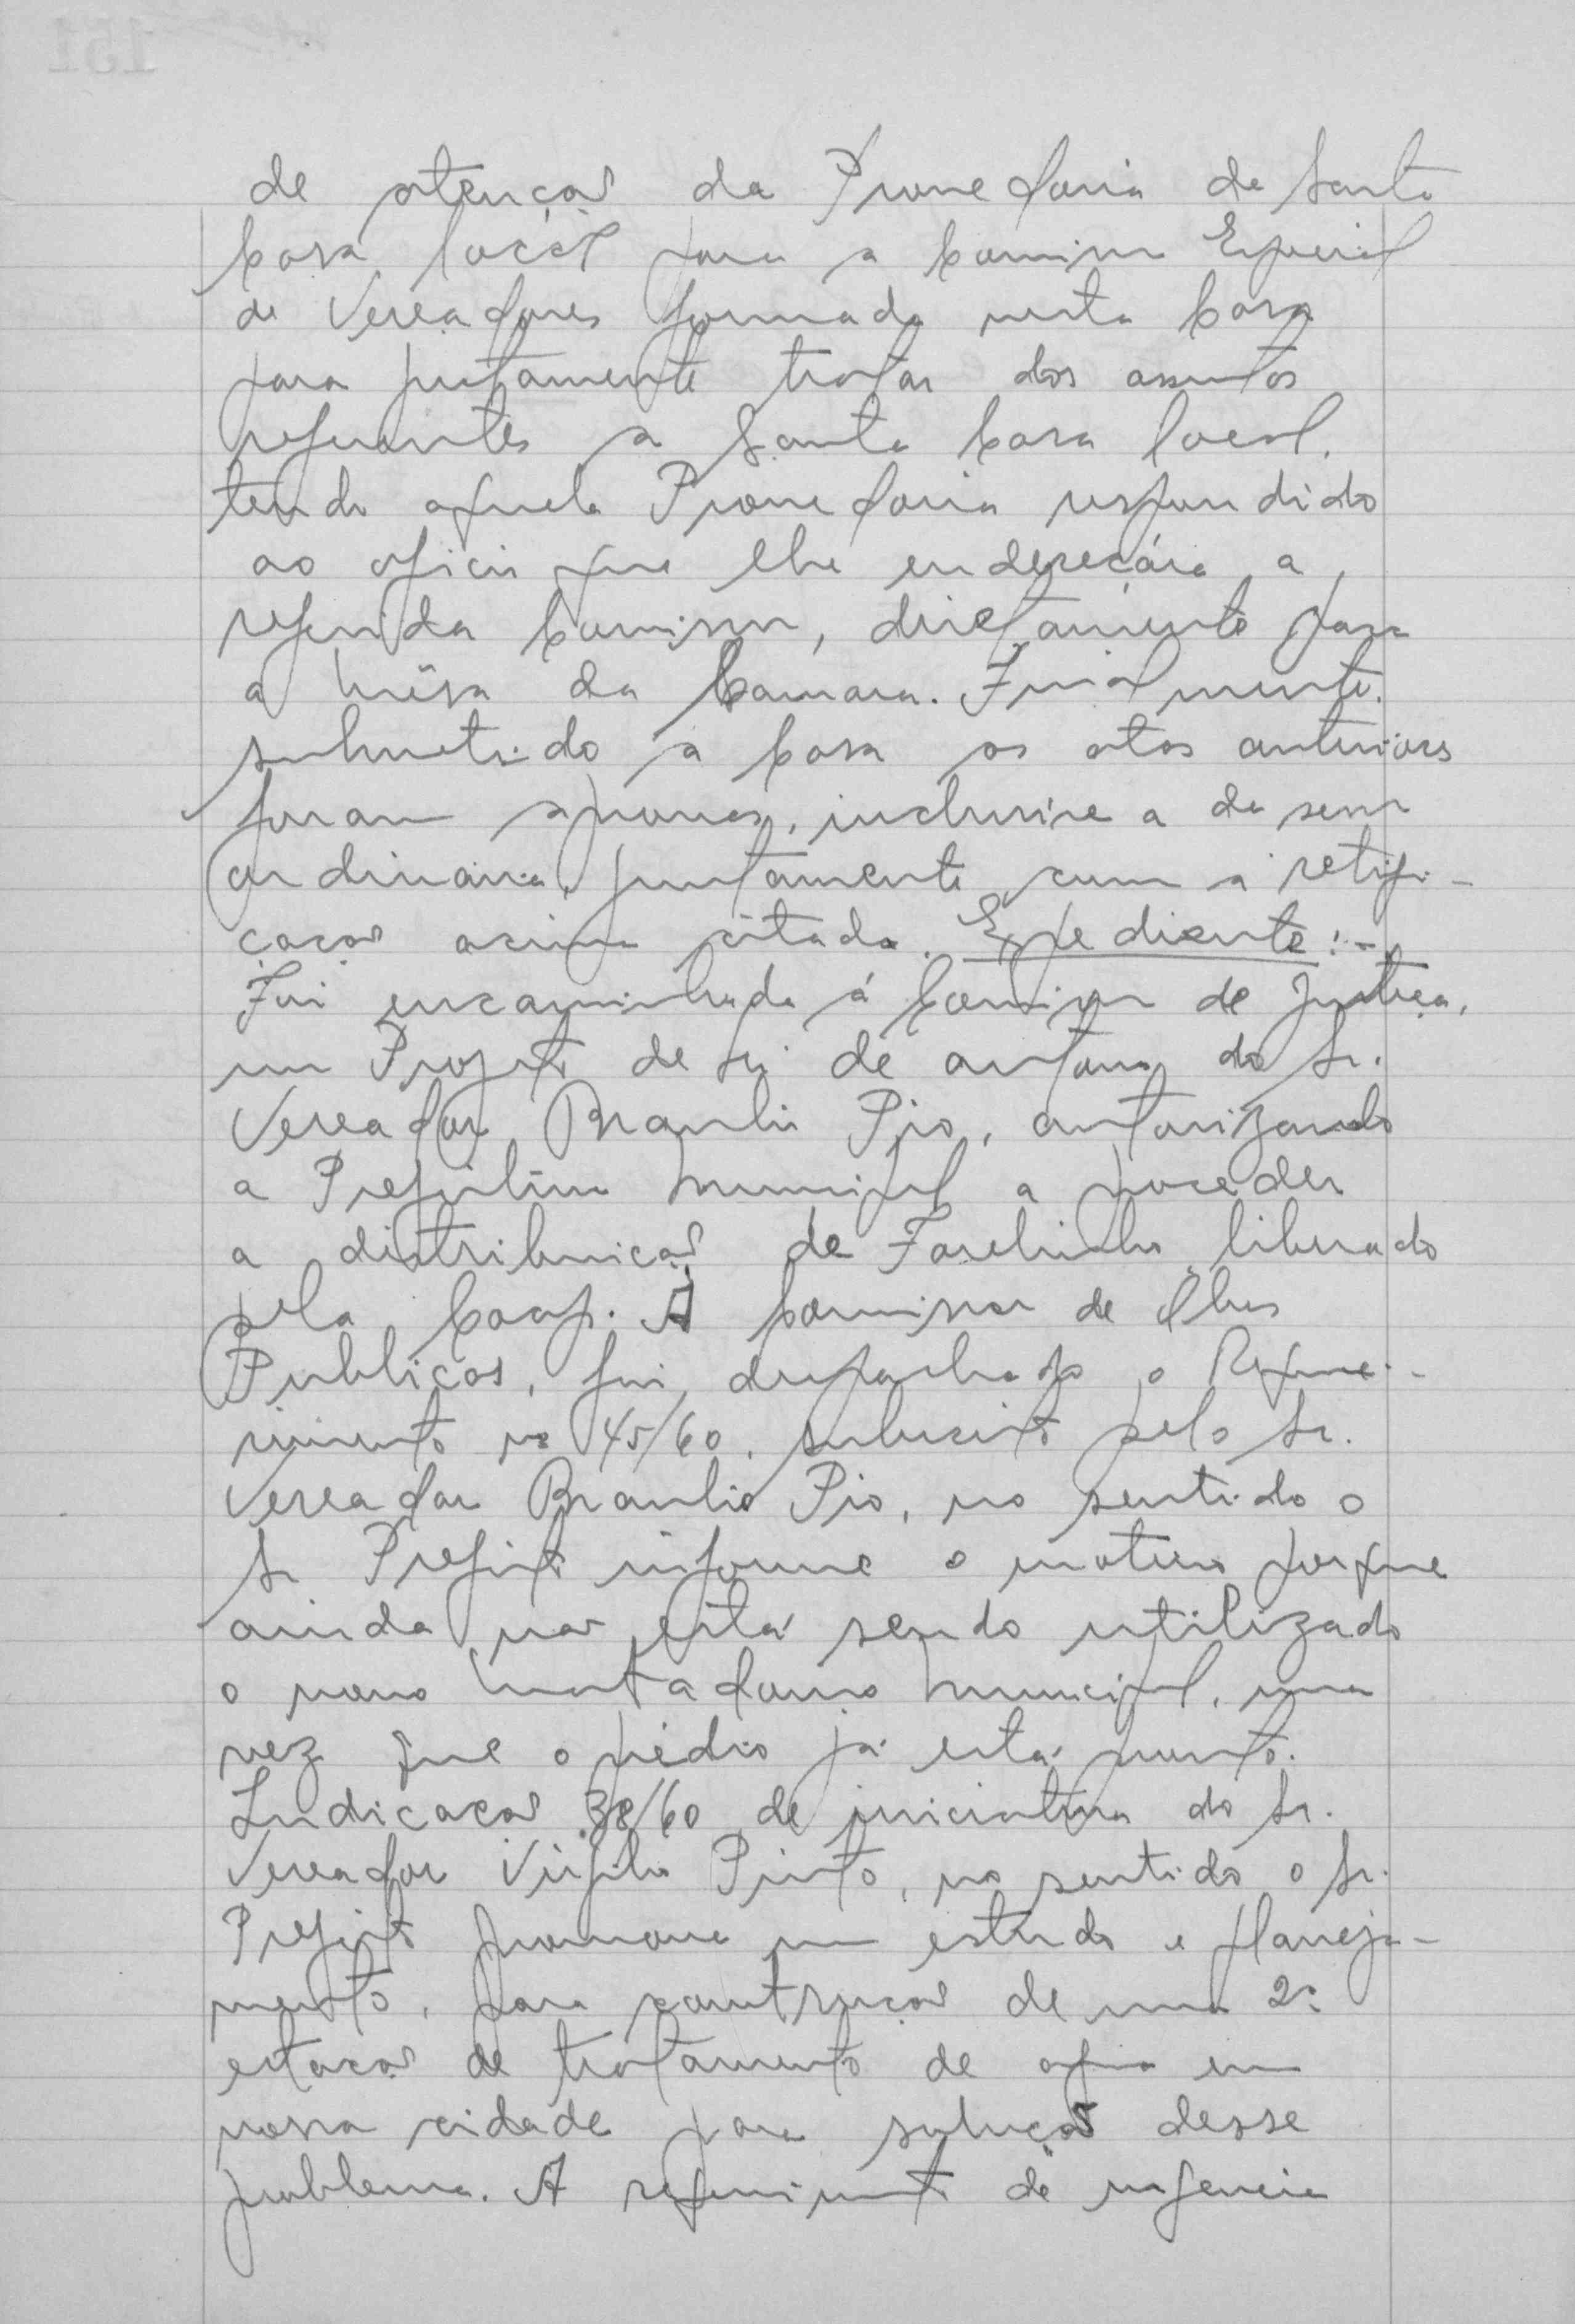 de atenção da Provedoria da Santa
Casa local para a Comissão Especial
de Vereadores formada nesta Casa
para justamente tratar dos assuntos
referentes a Santa Casa local,
tendo aquela Provedoria respondido
ao oficio que lhe endereçára a
referida Comissão, diretamente para
a mêsa da Camara. Finalmente,
submetido a Casa as atas anteriores
foram aprovadas, inclusive a da sessão
ordinária, juntamente com a retifi-
cação acima citada. Expediente:-
Foi encaminhado á Comissão de Justiça,
um Projeto de Lei de autoria do Sr.
Vereador Braulio Pio, autorizando
a Prefeitura Municipal a proceder
a distribuição de Farelinho liberado
pela Coap. A Comissão de Obras
Publicas, foi despachado o Reque-
rimento nº 45/60, subscrito pelo Sr.
Vereador Braulio Pio, no sentido o
Sr Prefeito informe o motivo porque
ainda não está sendo utilizado
o novo Matadouro Municipal, uma
vez que o prédio já está pronto.
Indicação 38/60 de iniciativa do Sr.
Vereador Virgilio Pinto, no sentido o Sr.
Prefeito promova um estudo e planeja-
mento, para construção de uma 2ª
estação de tratamento de agua em
nossa cidade para solução desse
problema. A requerimento de urgencia